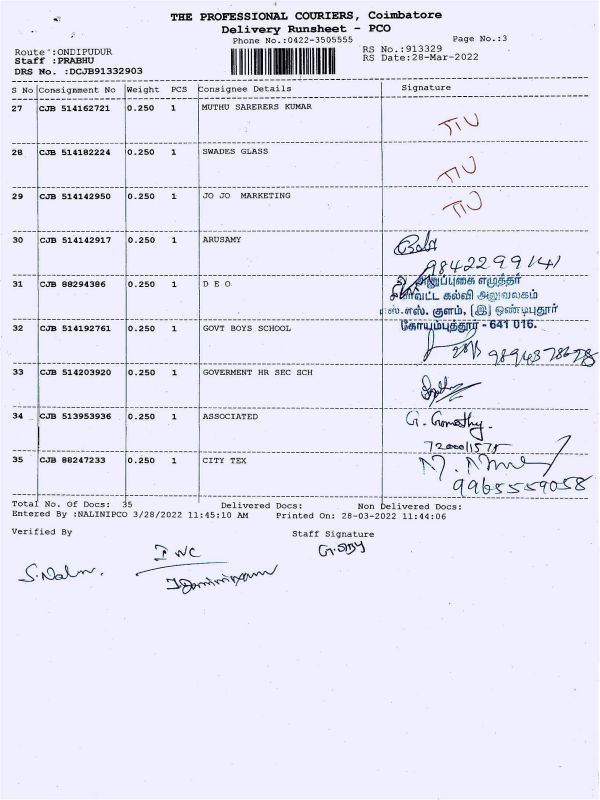 THE PROFESSIONAL COURIERS, Coimbatore
Delivery Runsheet - PCO
Phone No.:0422-3505555
Page No.:3
Route :ONDIPUDUR
RS No.:913329
Staff :PRABHU
RS Date:28-Mar-2022
DRS No. :DCJB91332903
S No Consignment No Weight PCS Consignee Details Signature
27 CJB 514162721 0.250 1 MUTHU SARERERS KUMAR
28 CJB 514182224 0.250 1 SWADES GLASS
29 CJB 514142950 0.250 1 JO JO MARKETING
30 CJB 514142917 0.250 1 ARUSAMY
9842299141
31 CJB 88294386 0.250 1 D E O
எழுத்தர்
கல்வி அலுவலகம்
குளம், (இ) ஒண்டிபுதூர்
கோயம்புத்தூர் - 641 016.
32 CJB 514192761 0.250 1 GOVT BOYS SCHOOL
33 CJB 514203920 0.250 1 GOVERMENT HR SEC SCH
34 CJB 513953936 0.250 1 ASSOCIATED G. Gomathy.
35 CJB 88247233 0.250 1 CITY TEX
9965559058
Total No. Of Docs: 35 Delivered Docs: Non Delivered Docs:
Entered By :NALINIPCO 3/28/2022 11:45:10 AM Printed On: 28-03-2022 11:44:06
Verified By Staff Signature